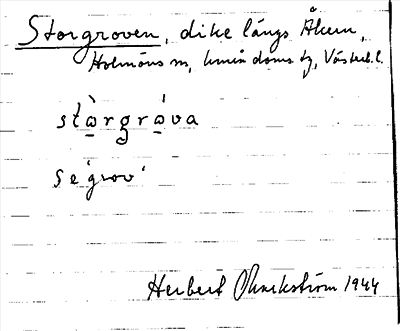 Storgroven, dike längs Åkern,
Holmöns sn, Umeå doms tg, Västerb. l.
stà̱rgrá̱va
se ́grov ́
Herbert Markström 1944